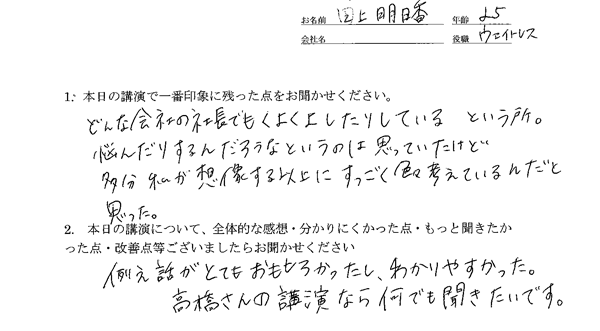 お名前 田上明日香 年齢 25
会社名 役職 ウェイトレス
1. 本日の講演で一番印象に残った点をお聞かせください。
どんな会社の社長でもくよくよしたりしている という所。
悩んだりするんだろうなというのは思っていたけど
多分 私が想像する以上にすっごく色々考えているんだと
思った。
2. 本日の講演について、全体的な感想・分かりにくかった点・もっと聞きたか
った点・改善点等ございましたらお聞かせください
例え話がとてもおもしろかったし、わかりやすかった。
高橋さんの講演なら何でも聞きたいです。